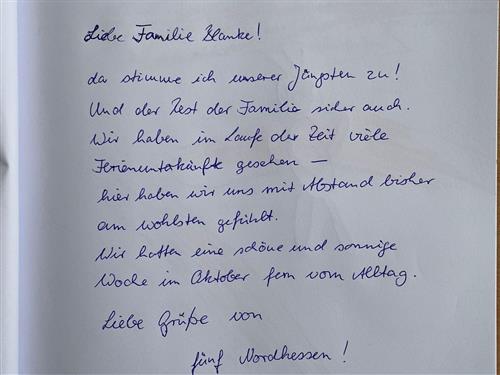 Liebe Familie Blanke!
da stimme ich unserer Jüngsten zu!
Und der Rest der Familie sicher auch.
Wir haben im Laufe der Zeit viele
Ferienunterkünfte gesehen –
hier haben wir uns mit Abstand bisher
am wohlsten gefühlt.
Wir hatten eine schöne und sonnige
Woche im Oktober fern vom Alltag.
Liebe Grüße von
fünf Nordhessen!